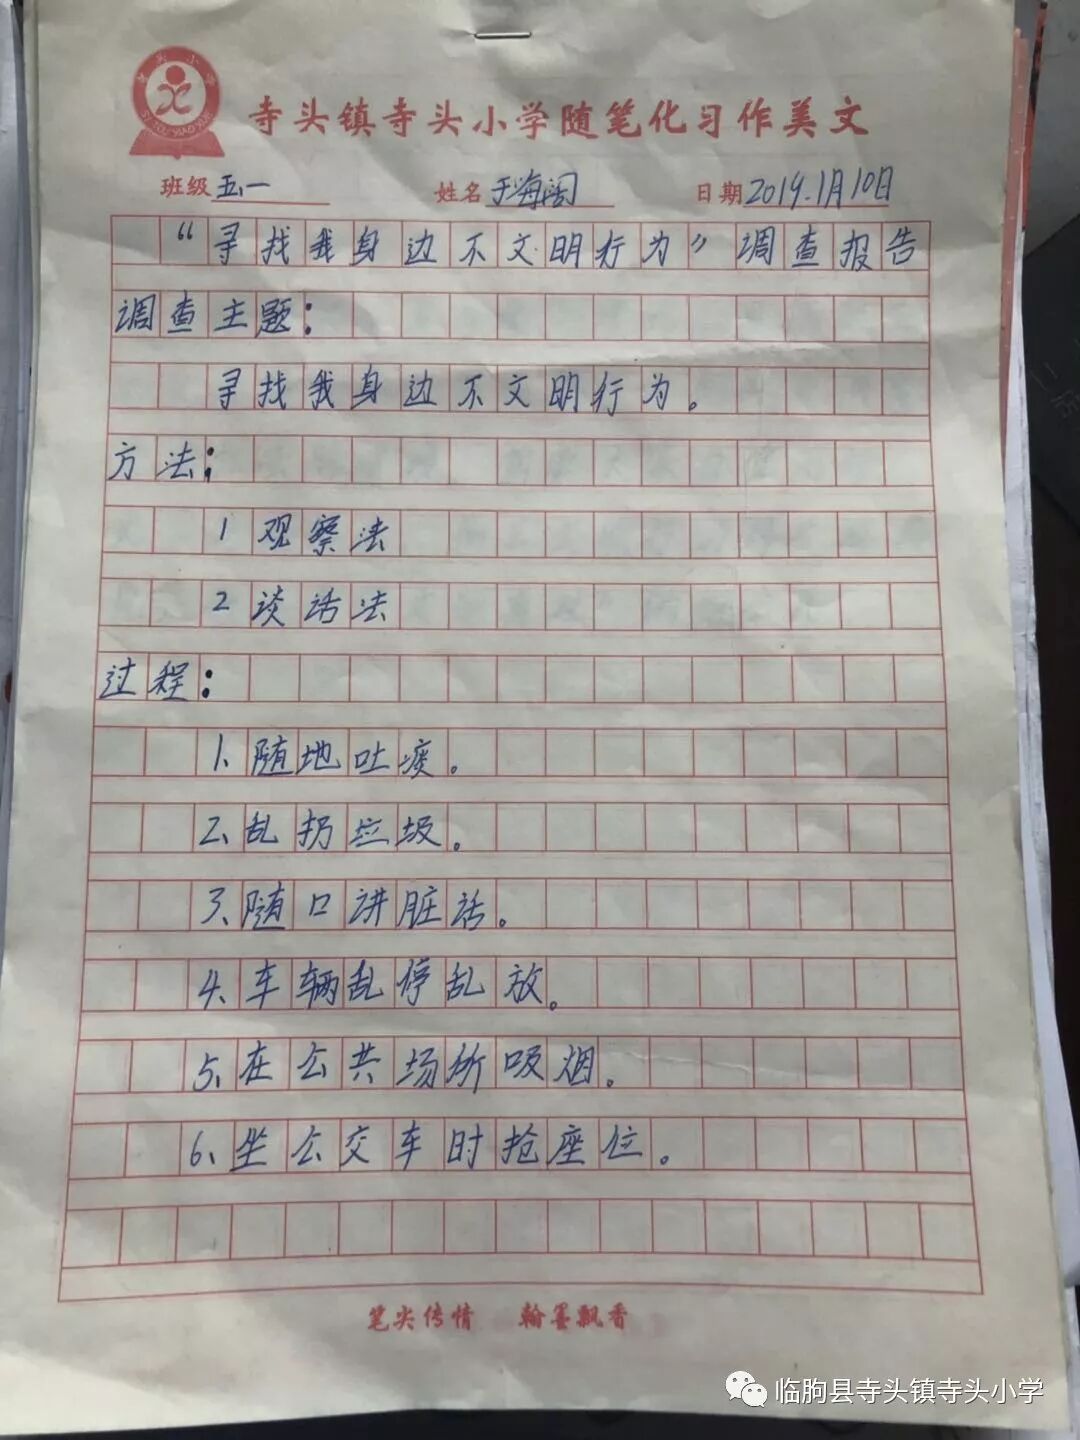 寺头镇寺头小学随笔化习作美文
班级 五、一 姓名 于海阔 日期 2019.1月10日
“寻找我身边不文明行为”调查报告
调查主题：
寻找我身边不文明行为。
方法：
1 观察法
2 谈话法
过程：
1、随地吐痰。
2、乱扔垃圾。
3、随口讲脏话。
4、车辆乱停乱放。
5、在公共场所吸烟。
6、坐公交车时抢座位。
笔尖传情 翰墨飘香
临朐县寺头镇寺头小学